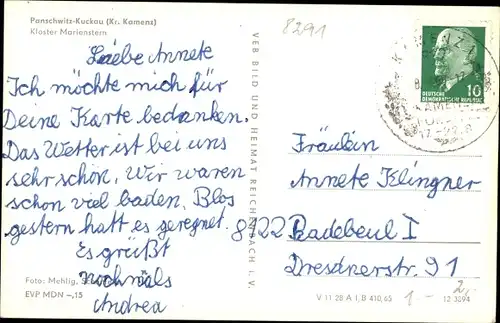 Panschwitz-Kuckau (Kr. Kamenz)
Kloster Marienstern
8291
Liebe Annete
Ich möchte mich für
Deine Karte bedanken.
Das Wetter ist bei uns
sehr schön. Wir waren
schon viel baden. Blos
gestern hatt es geregnet.
Es grüßt
nochmals
Andrea
Foto: Mehlig,
EVP MDN –,15
VEB BILD UND HEIMAT REICHENBACH I. V.
KAMENZ
10
DEUTSCHE
DEMOKRATISCHE REPUBLIK
Fräulein
Annete Klingner
8122 Radebeul I
Dresdnerstr. 91
V 11 28 A I, B 410,65
1.—
2,-
12 3294